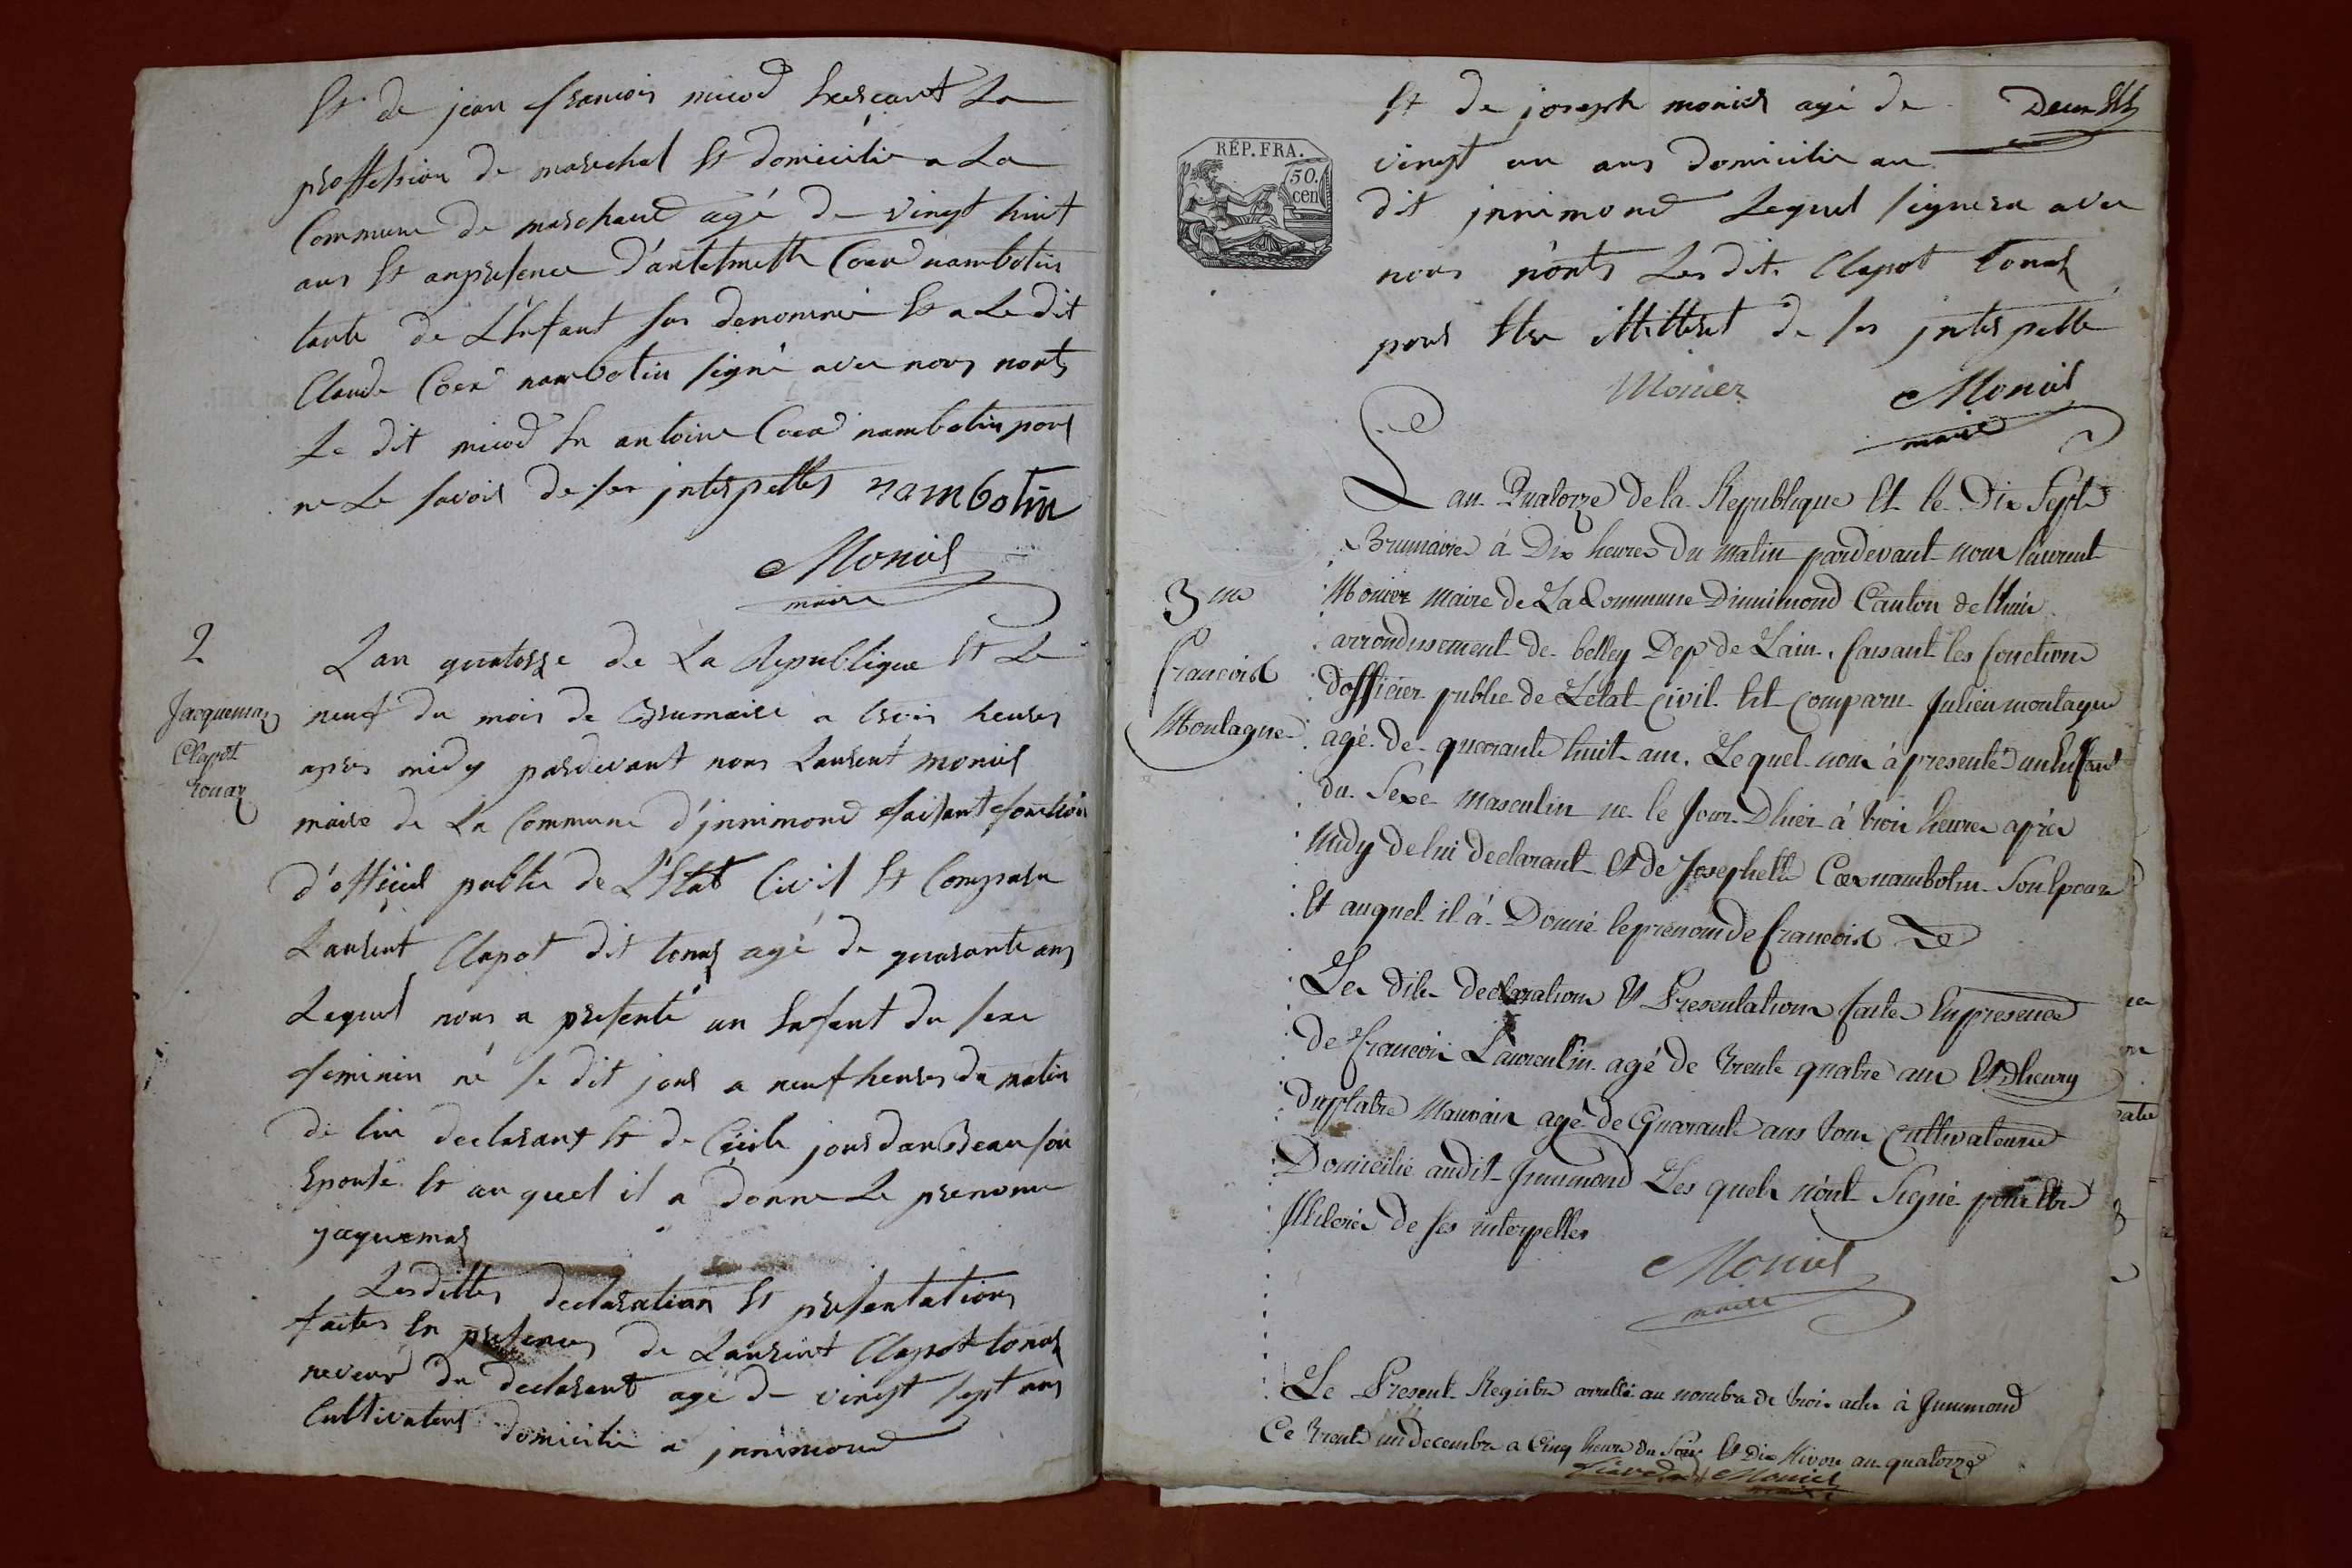 Et de jean francois micod Exerçant La
proffession de marechal Et domicilié a La
Commune de marchand agé de vingt huit
ans Et en presence d'antelmette Coeur nambotin
tante de L'Enfant sus denommé Et a Le dit
Claude Coeur nambotin signé avec nous nonts
Le dit micod En antoine Coeur nambotin pour
ne Le savoir de ses jnterpelles nambotin
Monier
maire
2
Jacquemaz
Clapot
tonaz
Lan quatorze de La Republique Et Le
neuf du mois de Brumaire a trois heures
apres midy pardevant nous Laurent monier
maire de La Commune d'jnnimond faisant fonction
d'officier public de L'Etat Civil Et Comparu
Laurent Clapot dit tonaz agé de quarante ans
Lequel nous a presenté un Enfant du sexe
feminin né Le dit jour a neuf heures du matin
de lui declarant Et de Cécile jourdan Beau son
Epouse Et au quel il a donne Le prenome
jaquemaz
Lesdittes declaration Et presentations
faites En presences de Laurent Clapot tonaz
neveux du declarant agé de vingt sept ans
Cultivateur domicilié a jnnimond
RÉP. FRA.
50.
cen
Et de joseph monier agé de
Deux
vingt un ans domicilié au
dit jnnimond Lequel signera avec
nous n'onts Les dits Clapot tonaz
pour Etre illitteret de ses jnterpellé
Monier
Monier
maire
3me
Francois
Montagne
L an Quatorze de la Republique Et le Dix Sept
Brumaire à Dix heures du matin pardevant nous laurent
Monier Maire de La Commune Dinnimond Canton de lhuis
arrondissement de belley Dep de Lain, faisant les fonctions
dofficier public de Letat Civil Est Comparu Julien montagne
agé de quarante huit ans. Lequel nous à presenté un Enfant
du Sexe masculin ne le Jour Dhier à trois heures après
midy de lui declarant Et de Josephette Coeur nambotin Son Epouze
Et auquel il à Donné le prenom de francois
Les dites declarations Et Presentations faites En presence
de francois Laurentin agé de Trente quatre ans Et dhenry
Duplatre Mauvais agé de Quarante ans tous Cultivateurs
Domicilié audit Jnnimond Les quels n'ont Signé pour Etre
Illiterés de ses interpelles
Monier
maire
Le Present Registre arretté au nombre de trois actes à Jnnimond
Ce Trente un decembre a Cinq heures du Soir Et Dix Nivose an quatorze
Monier
maire